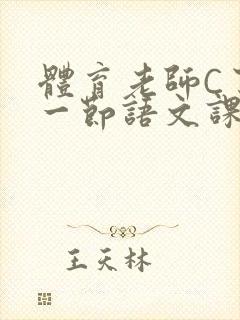 體育老師C
一節語文課
王天林